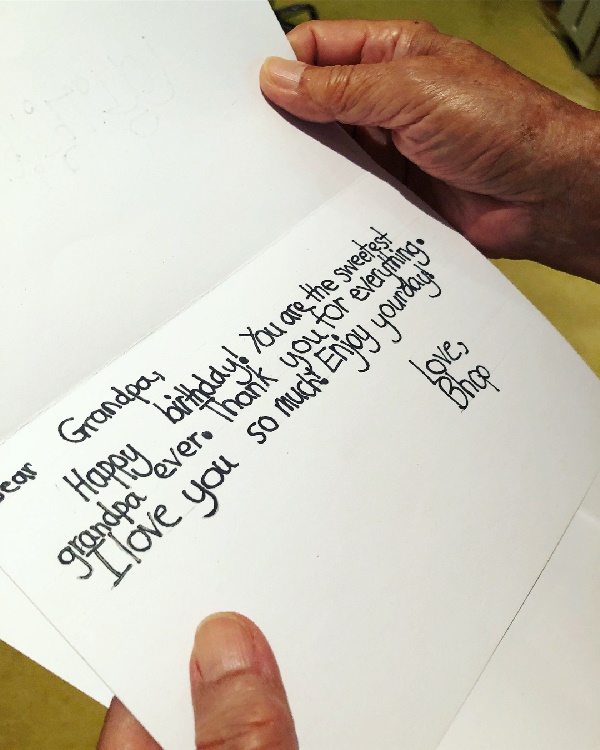 Dear Grandpa,
Happy birthday! You are the sweetest
grandpa ever. Thank you for everything.
I love you so much! Enjoy your day!
Love,
Bhop